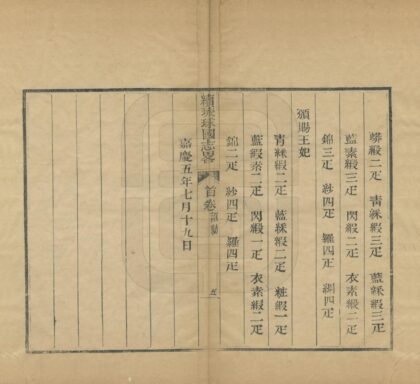 蟒緞二疋 青綵緞三疋 藍綵緞三疋
藍素緞三疋 閃緞二疋 衣素緞二疋
錦三疋 紗四疋 羅四疋 綢四疋
頒賜王妃
青綵緞二疋 藍綵緞二疋 粧緞一疋
藍緞素二疋 閃緞一疋 衣素緞二疋
錦二疋 紗四疋 羅四疋
續琉球國志畧 首卷 五
嘉慶五年七月十九日